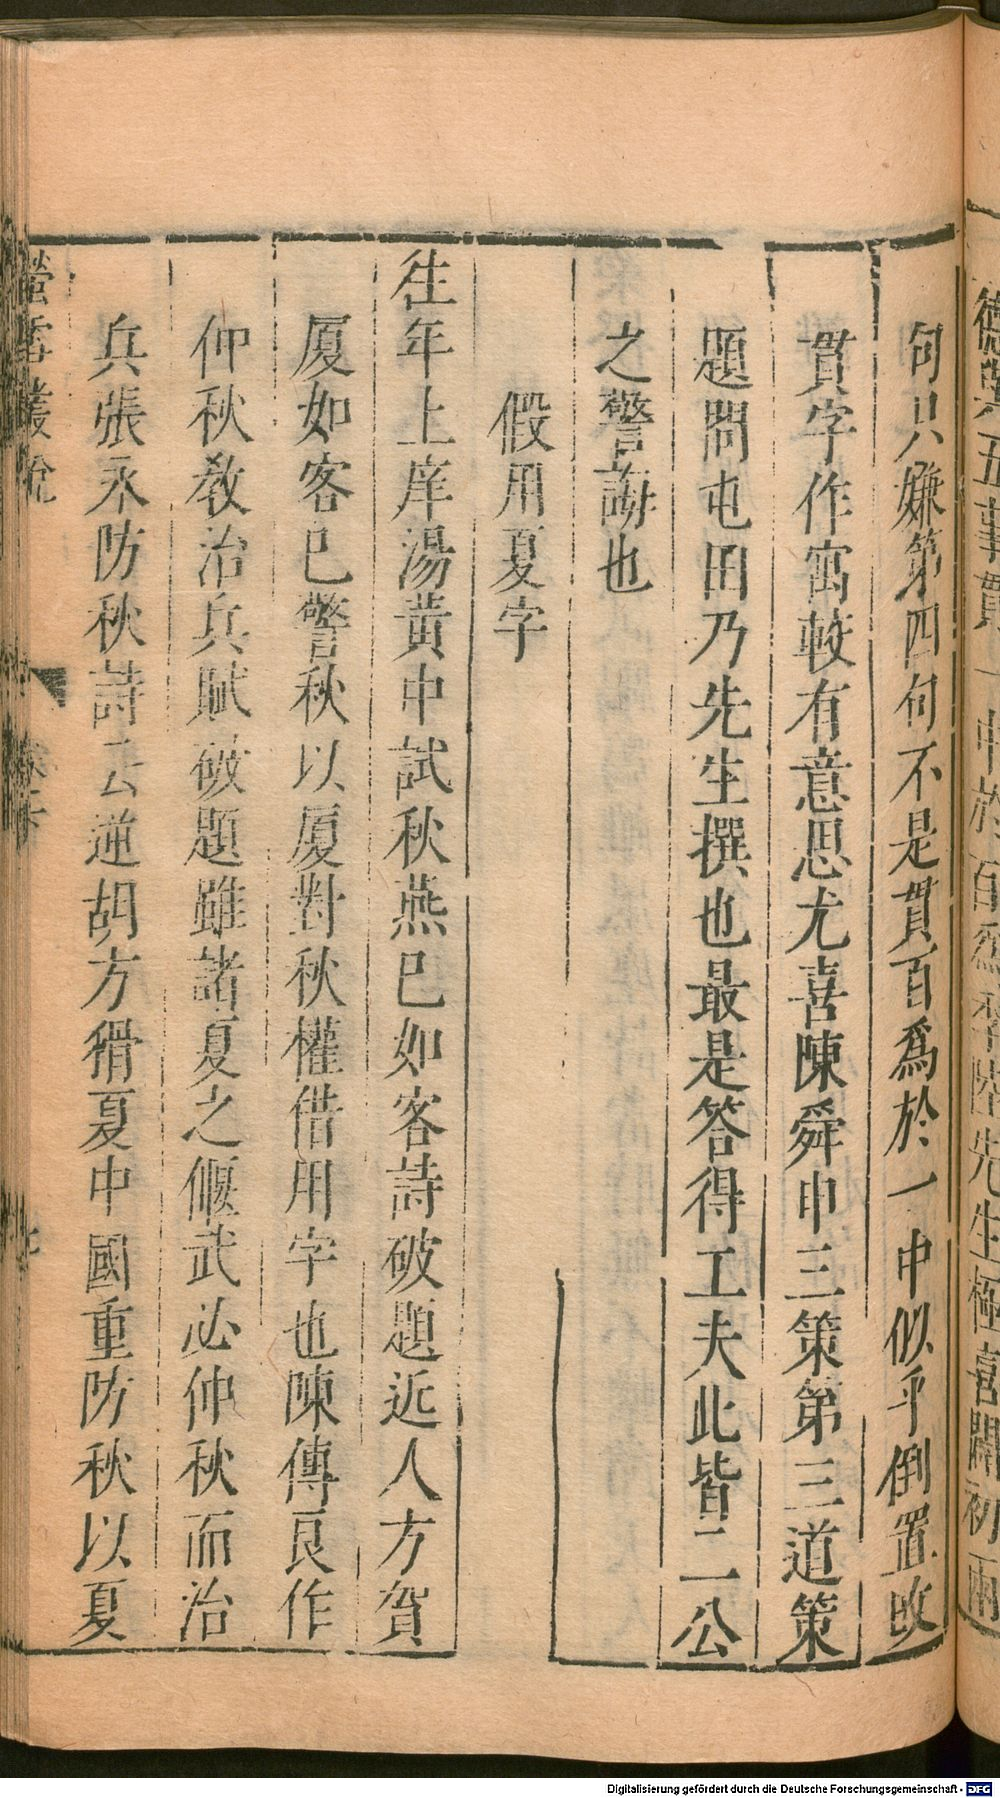 句只嫌第四句不是貫百爲於一中似乎倒置改
貫字作寓較有意思尤喜陳舜申三策第三道策
題問屯田乃先生撰也最是答得工夫此皆二公
之警誨也
假用夏字
往年上庠湯黃中試秋燕已如客詩破題近人方賀
厦如客已警秋以厦對秋權借用字也陳傅良作
仲秋敎治兵賦破題雖諸夏之偃武必仲秋而治
兵張永防秋詩云逆胡方猾夏中國重防秋以夏
螢雪叢說
Digitalisierung gefördert durch die Deutsche Forschungsgemeinschaft - DFG